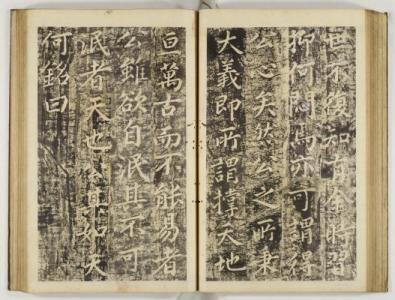 世不復知有秦時習
抑何閒焉亦可謂得
公心矣然公之所秉
大義即所謂撐天地
亘萬古而不能易者
公雖欲自泯其不可
泯者天也公其如天
何銘曰